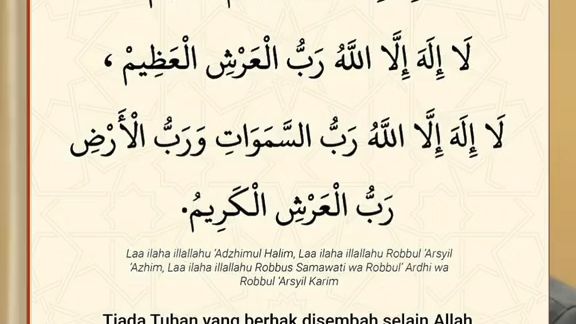 لَا إِلَهَ إِلَّا اللَّهُ رَبُّ الْعَرْشِ الْعَظِيمْ ،
لَا إِلَهَ إِلَّا اللَّهُ رَبُّ السَّمَوَاتِ وَرَبُّ الْأَرْضِ
رَبُّ الْعَرْشِ الْكَرِيمُ.
Laa ilaha illallahu 'Adzhimul Halim, Laa ilaha illallahu Robbul 'Arsyil
'Azhim, Laa ilaha illallahu Robbus Samawati wa Robbul' Ardhi wa
Robbul 'Arsyil Karim
Tiada Tuhan yang berhak disembah selain Allah